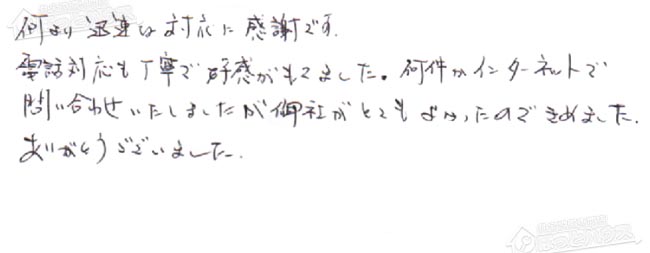 何より迅速な対応に感謝です.
電話対応も丁寧で好感がもてました。何件かインターネットで
問い合わせいたしましたが御社がとてもよかったのできめました.
ありがとうございました.